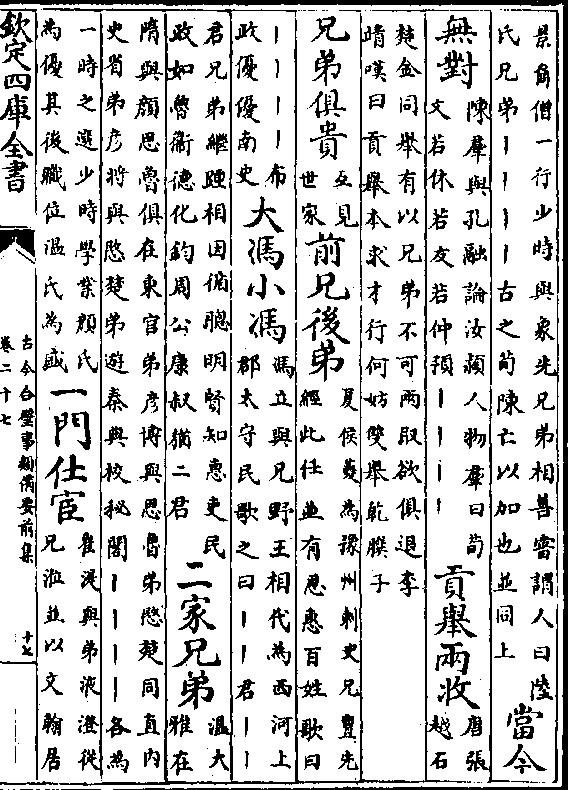 景裔僧一行少時與象先兄弟相善嘗謂人曰陸
氏兄弟丨丨丨丨古之荀陳亡以加也並同上
當今
無對
陳羣與孔融論汝潁人物羣曰荀
文若休若友若仲預丨丨丨丨
貢舉兩收
唐張
越石
楚金同舉有以兄弟不可兩取欲俱退李
晴嘆曰貢舉本求才行何妨雙舉乾𦠆子
兄弟俱貴
互見
世家
前兄後弟
夏侯夔為豫州刺史兄亶先
經此任並有恩惠百姓歌曰
丨丨丨丨布
政優優南史
大馮小馮
馮立與兄野王相代為西河上
郡太守民歌之曰丨丨君丨丨
君兄弟繼踵相因循聰明賢知惠吏民
政如魯衞德化鈞周公康叔猶二君
二家兄弟
温大
雅在
隋與顔思魯俱在東宫弟彦博與思魯弟愍楚同直内
史省弟彦將與愍楚弟遊秦典校秘閣丨丨丨丨各為
一時之選少時學業顔氏
為優其後職位温氏為盛
一門仕宦
崔湜與弟液澄從
兄涖並以文翰居
欽定四庫全書
古今合璧事類備要前集
卷二十七
十七